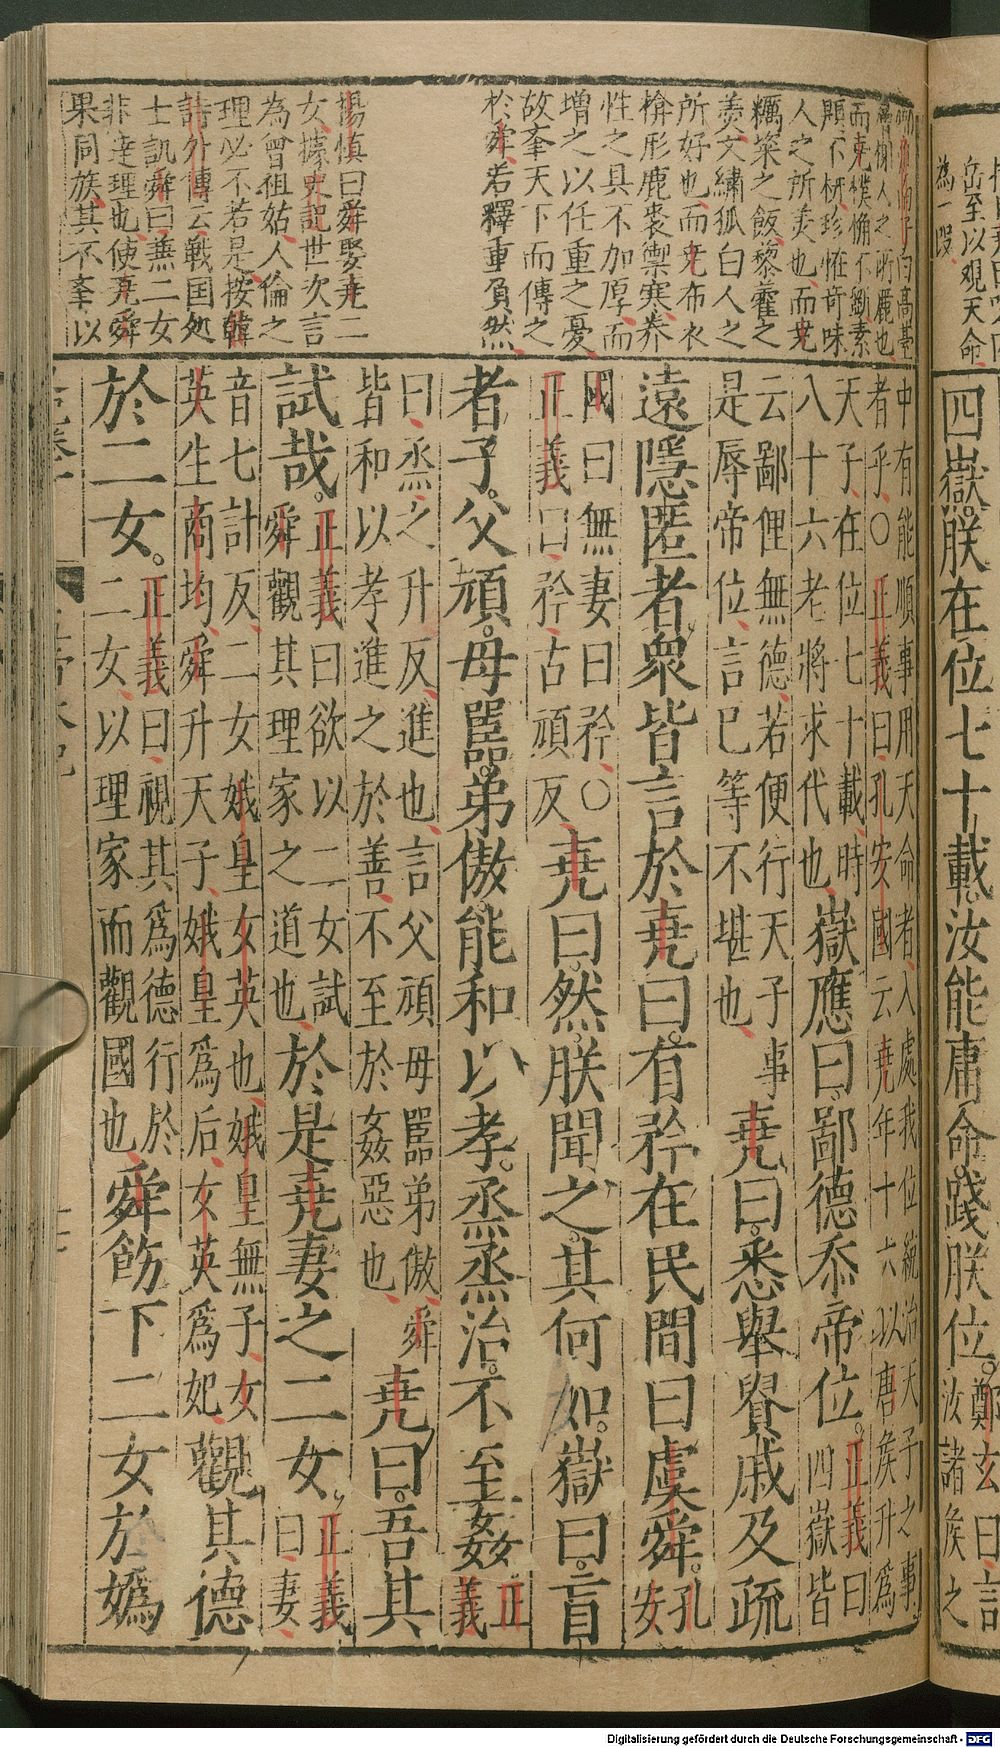 岳至以觀天命
為一說
四嶽。朕在位七十載。汝能庸命。踐朕位。鄭玄曰言
汝諸侯之
曰高臺
層榭人之所麗也
而堯樸桷不斲素
題不枅珍怪奇味
人之所美也而堯
糲粢之飯藜藿之
羮文繡狐白人之
所好也而堯布衣
揜形鹿裘禦寒養
性之具不加厚而
增之以任重之憂
故舉天下而傳之
於舜若釋重負然
揚慎曰舜娶堯二
女據史記世次言
為曾祖姑人倫之
理必不若是按韓
詩外傳云戰囯処
士訊舜曰二女
非達理也使堯舜
果同族其不以
中有能順事用天命者入處我位統治天子之事
者乎〇正義曰孔安國云堯年十六以唐侯升爲
天子在位七十載時
八十六老將求代也嶽應曰。鄙德忝帝位。正義曰
四嶽皆
云鄙俚無德若便行天子事
是辱帝位言已等不堪也堯曰。悉舉貴戚及疏
遠隱匿者。衆皆言於堯曰。有矜在民間曰虞舜。孔
安
國曰無妻曰矜〇
正義曰矜古頑反堯曰。然。朕聞之。其何如。嶽曰。盲
者子。父頑。母嚚。弟傲。能和以孝。烝烝治。不至姦。正
義
曰烝之升反進也言父頑母嚚弟傲舜
皆和以孝進之於善不至於姦惡也堯曰。吾其
試哉。正義曰欲以二女試
舜觀其理家之道也於是堯妻之二女。正義
曰妻
音七計反二女娥皇女英也娥皇無子女
英生商均舜升天子娥皇爲后女英爲妃觀其德
於二女。正義曰視其爲德行於
二女以理家而觀國也舜飭下二女於嬀